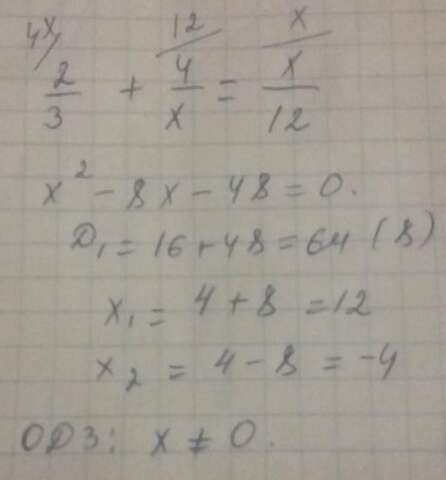 4x/ 12/ x/
2/3 + 4/x = x/12
x² - 8x - 48 = 0.
D₁ = 16 + 48 = 64 (8)
x₁ = 4 + 8 = 12
x₂ = 4 - 8 = -4
ОДЗ: x ≠ 0.